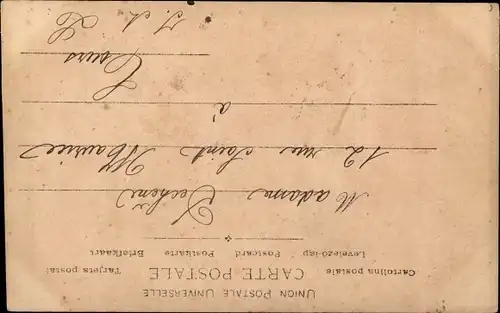 UNION POSTALE UNIVERSELLE
CARTE POSTALE
Cartolina postale Tarjeta postal
Levelező-lap Postcard Postkarte Briefkaart
Madame
12 rue Saint Maurice
à
Tours
I. et L.